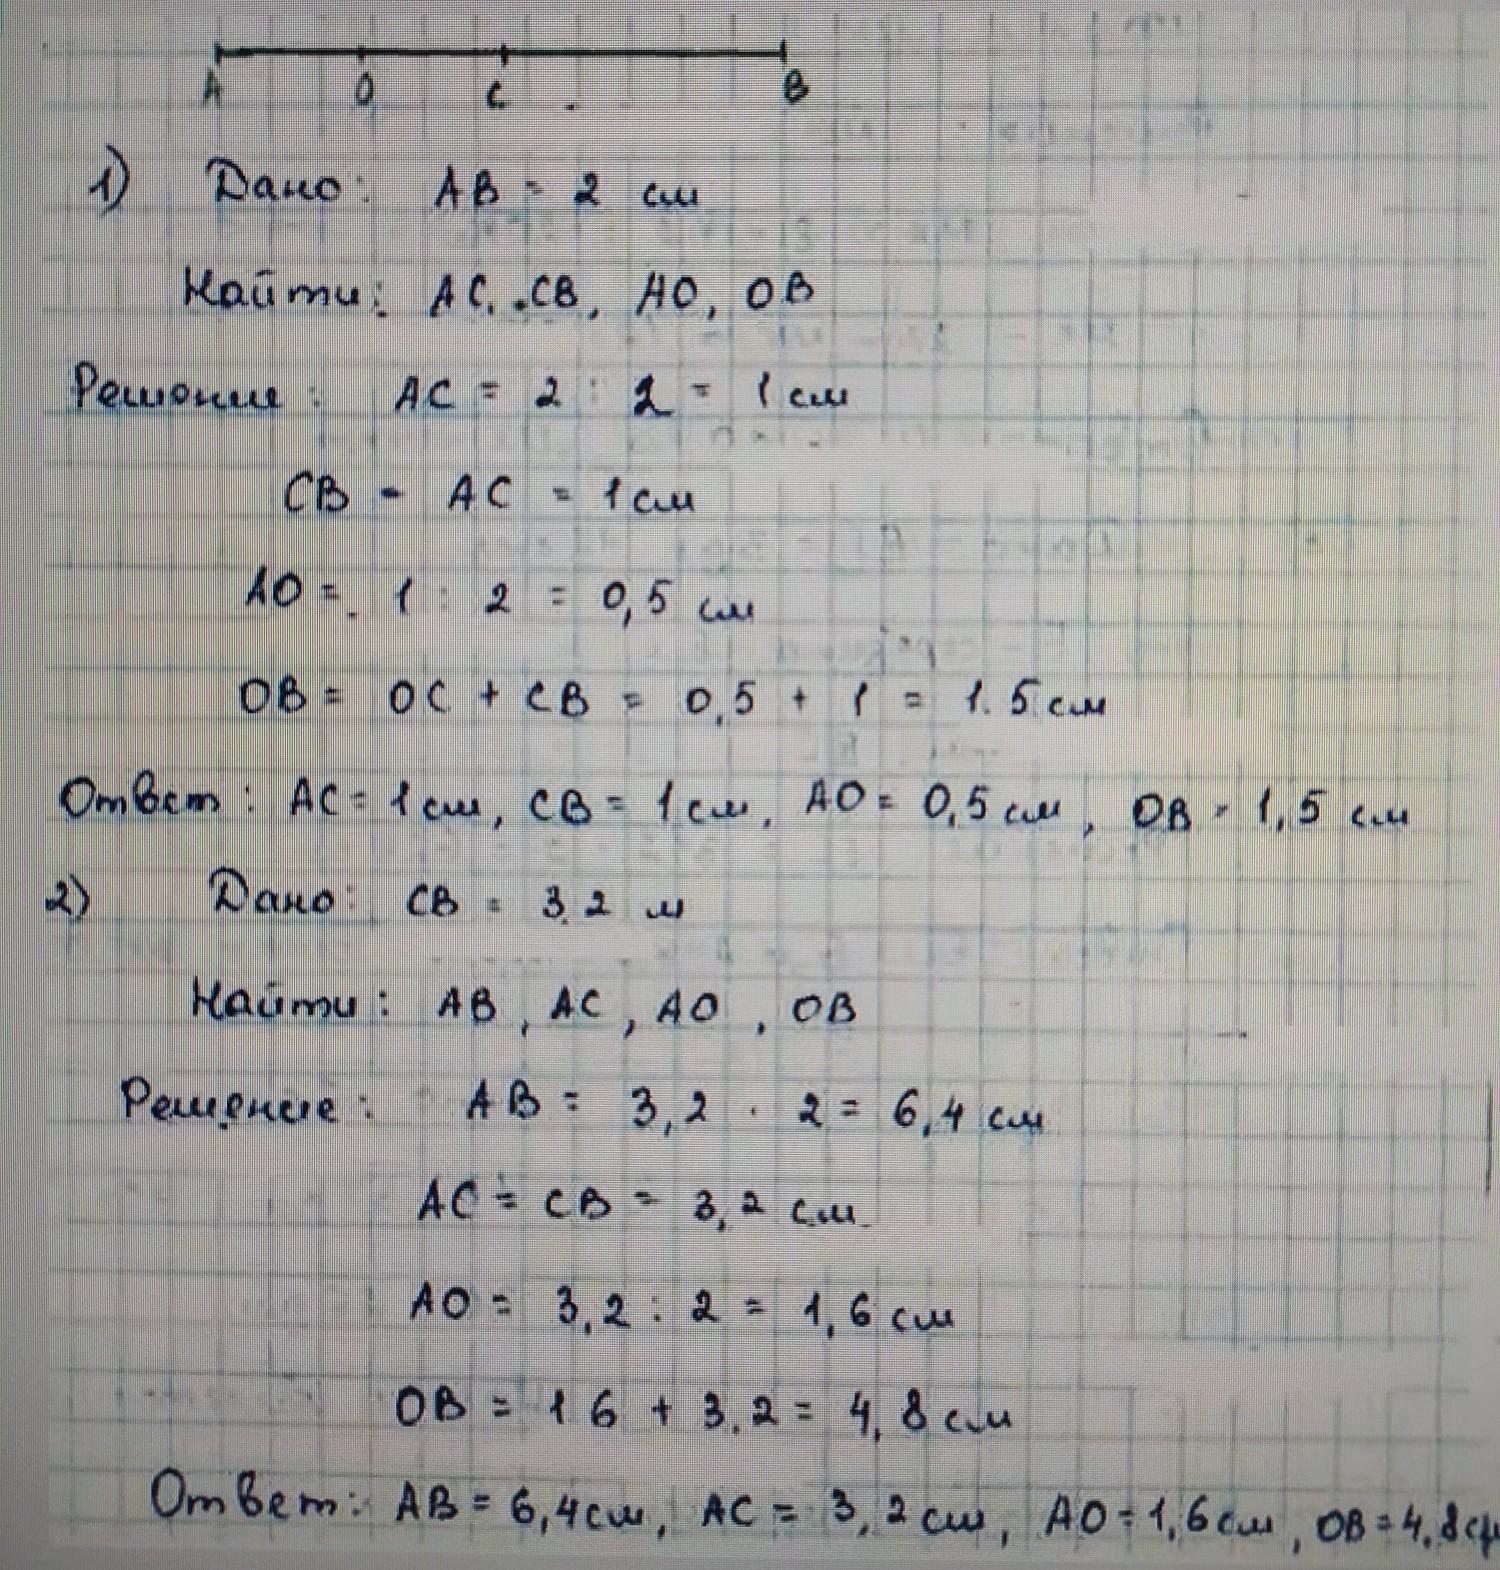 A O C B
1) Дано: AB = 2 см
Найти: AC, CB, AO, OB
Решение: AC = 2 : 2 = 1 см
CB = AC = 1 см
AO = 1 : 2 = 0,5 см
OB = OC + CB = 0,5 + 1 = 1.5 см
Ответ: AC = 1 см, CB = 1 см, AO = 0,5 см, OB = 1,5 см
2) Дано: CB = 3.2 м
Найти: AB, AC, AO, OB
Решение: AB = 3,2 · 2 = 6,4 см
AC = CB = 3,2 см
AO = 3,2 : 2 = 1,6 см
OB = 1 6 + 3,2 = 4,8 см
Ответ: AB = 6,4 см, AC = 3,2 см, AO = 1,6 см, OB = 4,8 см